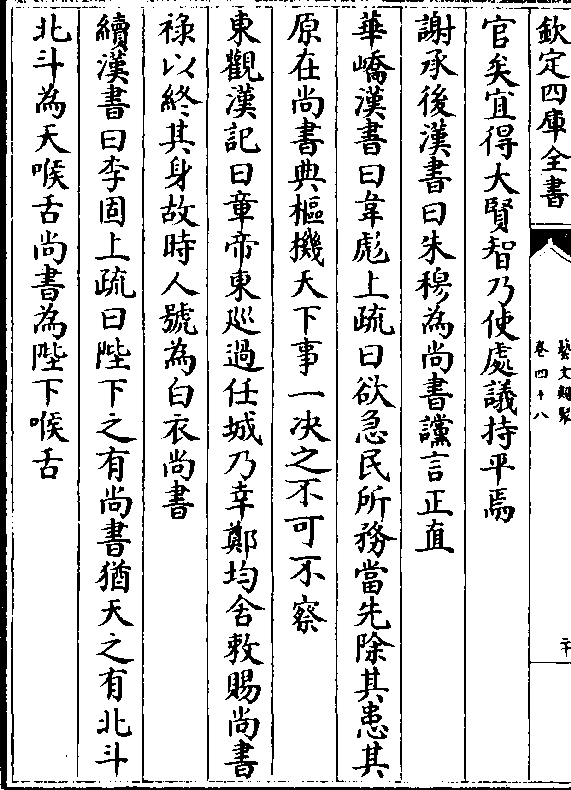 欽定四庫全書
藝文類聚
卷四十八
二十
官矣宜得大賢智乃使處議持平焉
謝承後漢書曰朱穆為尚書讜言正直
華嶠漢書曰韋彪上疏曰欲急民所務當先除其患其
原在尚書典樞機天下事一决之不可不察
東觀漢記曰章帝東廵過任城乃幸鄭均舍敕賜尚書
祿以終其身故時人號為白衣尚書
續漢書曰李固上疏曰陛下之有尚書猶天之有北斗
北斗為天喉舌尚書為陛下喉舌